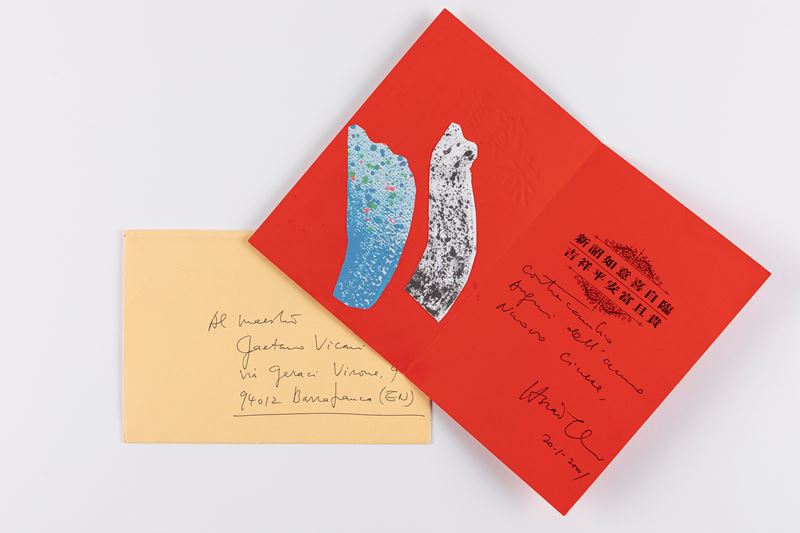 Al maestro
Gaetano Vicari
via Geraci Virone, 9
94012 Barrafranca (EN)
新韶如意喜自臨
吉祥平安富且貴
Contraccambio
Auguri dell'anno
Nuovo Cinese,
Hsiao
20-1-2001